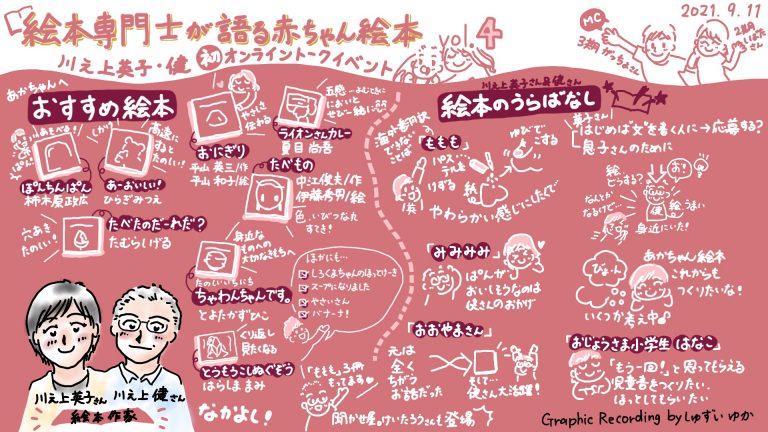 絵本専門士が語る赤ちゃん絵本
vol.4
川之上英子・健 初 オンライントークイベント
2021.9.11
MC
3期
2期
あかちゃんへ
おすすめ絵本
ぱんちんぱん
柿木原政広
高速に
すると
たのしい!
あーおいしい!
ひらぎみつえ
穴あき
たのしい!
たべたのだーれだ?
たむらしげる
やさしさ
伝わる
おにぎり
平山英三/作
平山和子/絵
五感…よむときに
においと
ぜひ一緒に
ライオンさんカレー
夏目尚吾
たべもの
中江俊夫/作
伊藤秀男/絵
色、いびつなれ
すてき!
身近な
ものへの
大切なきもちへ
たのしいいちにち
ちゃわんちゃんです。
とよたかずひこ
くり返し
見たくなる
とうもろこしぬぐぞう
はらしままみ
ほかにも…
しろくまちゃんのほっとけーき
スープになりました
やさいさん
バナーナ!
「ももも」3冊
もってます
川之上英子さん
川之上健さん
絵本作家
なかよし!
聞かせ屋。けいたろうさんも登場
川之上英子さん&健さん
絵本のうらばなし
海外翻訳
できない
ことば
「ももも」
パス
テルを
けずる
粉
ゆびで
こする
やわらかい感じにしたくて
「みみみみ」
ぱんが
おいしそうなのは
健さんのおかげ
「おおやまさん」
元は
全く
ちがう
お話だった
そして…
健さん大活躍!
英子さん
はじめは"文"を書く人に→応募する?
息子さんのために
絵
どうする?
なんとか
なるけど…
健
絵うまい
身近にいた!
ぴょーん
あかちゃん絵本
これからも
つくりたいな!
いくつか考え中♪
「おじょうさま小学生 はなこ」
「もう一回!」と思ってもらえる
児童書をつくりたい。
ほっとしてもらいたい
Graphic Recording by しゅずい ゆか